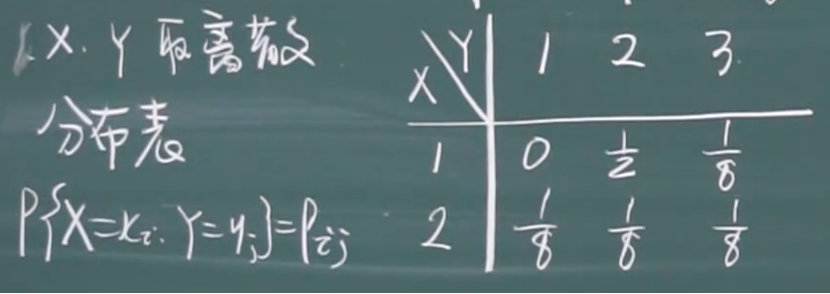 X. Y 取离散
分布表
P{X=x_i. Y=y_j}=P_ij
X\Y 1 2 3
1 0 1/2 1/8
2 1/8 1/8 1/8